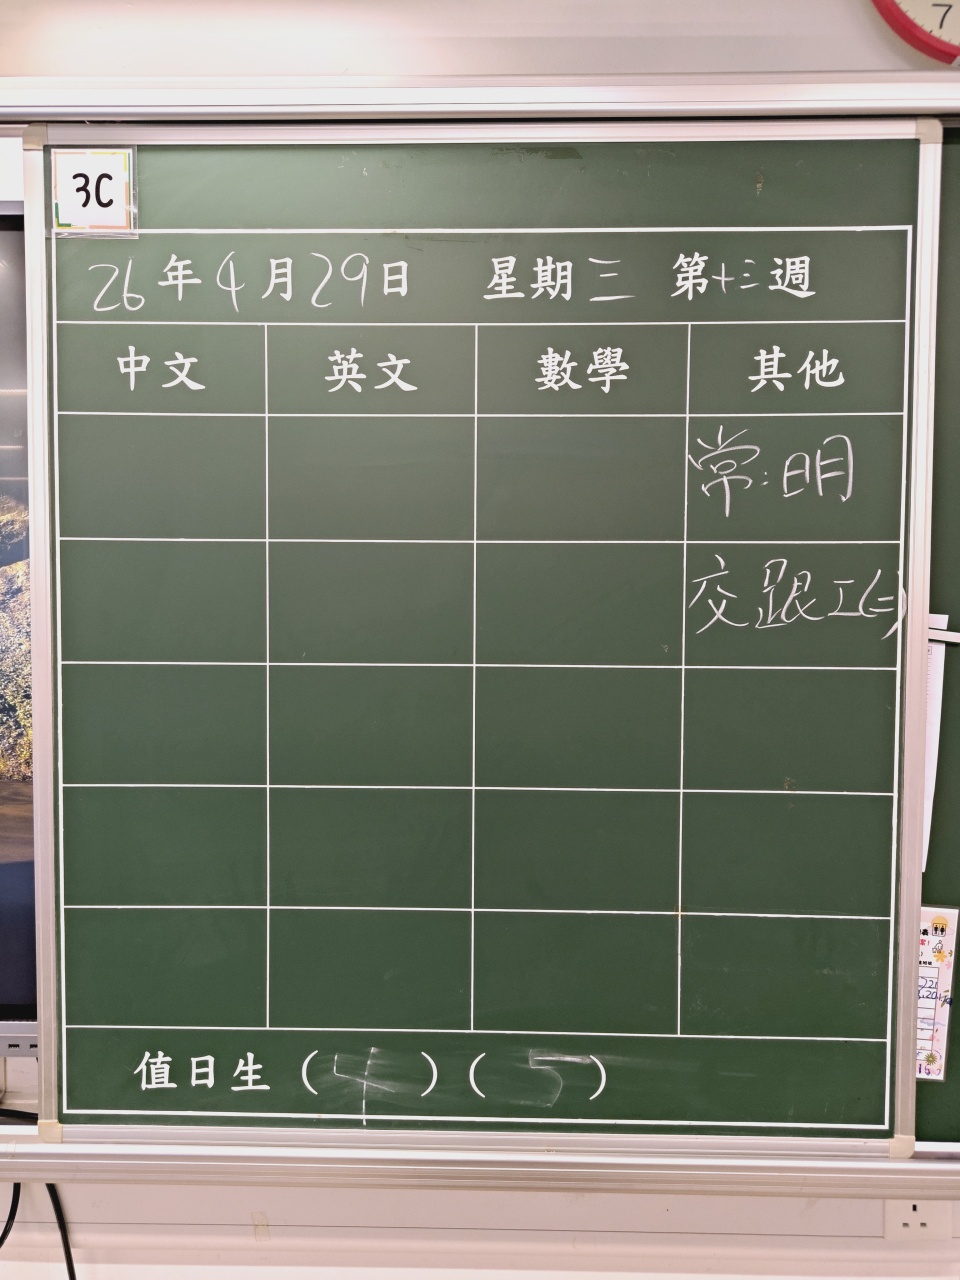 7
3C
26年4月29日 星期三 第十三週
中文 英文 數學 其他
常:明
交跟工(二)
值日生(4)(5)